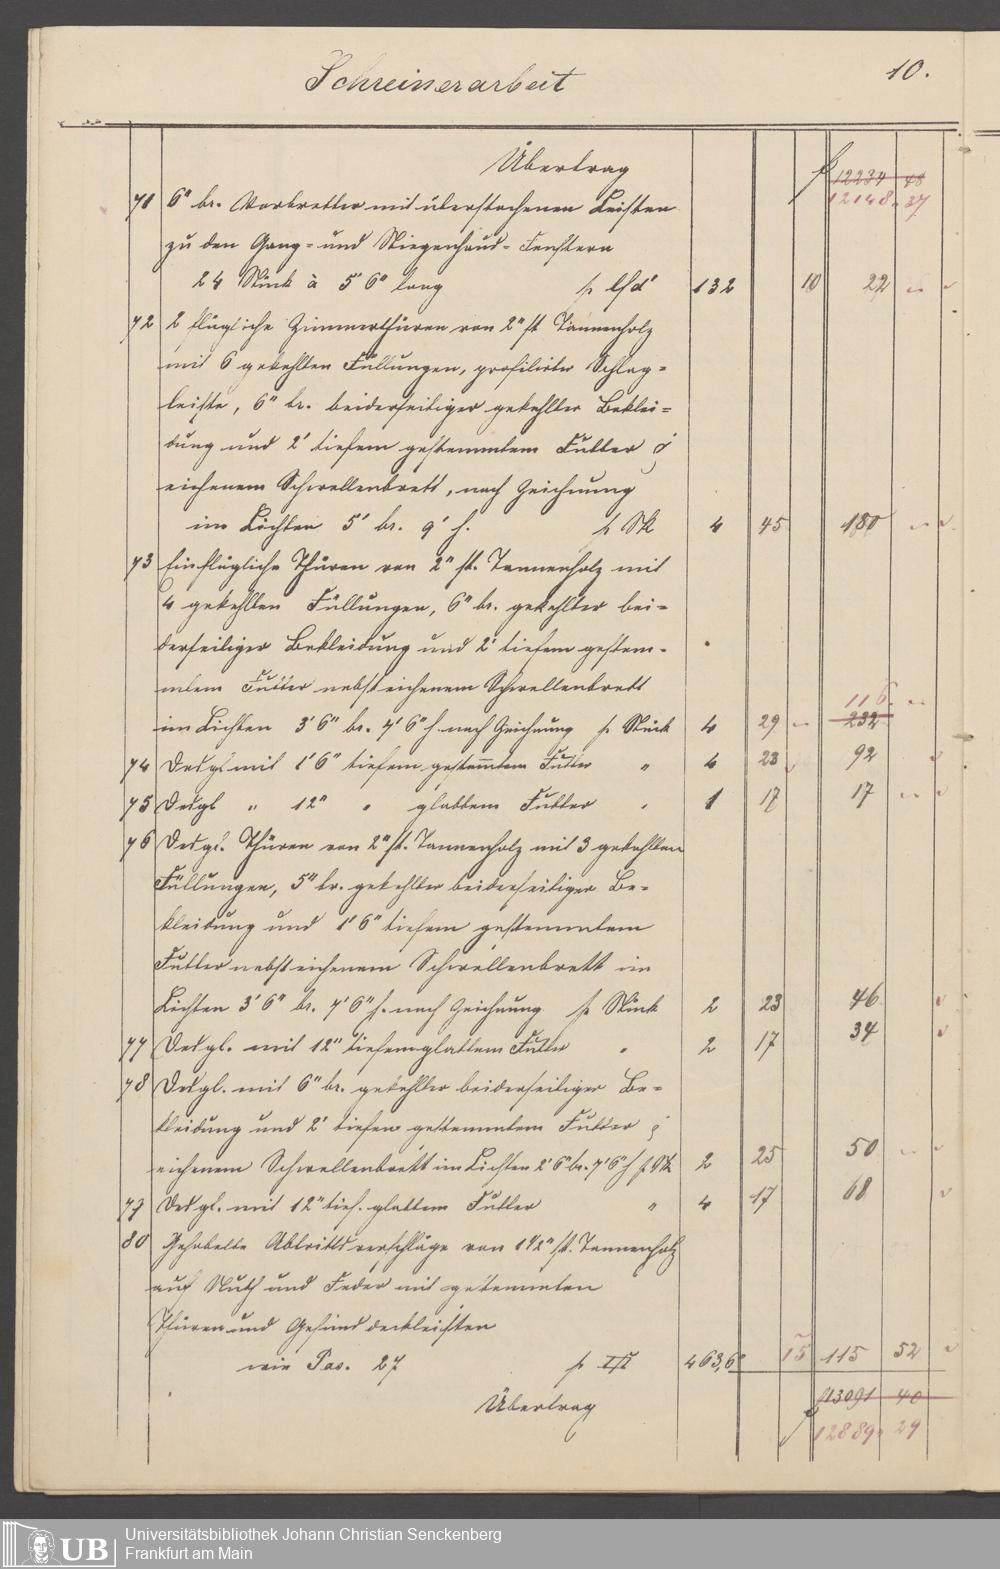 Schreinerarbeit 10.
Übertrag f 12234 48
12148. 37
71 6" br. Vorbretter mit überstochenen Leisten
zu den Gang- und Stiegenhaus-Fenstern
24 Stück à 5' 6" lang p lfd' 132 10 22 " "
72 2 flügliche Zimmerthüren von 2" st Tannenholz
mit 6 gekehlten Füllungen, profilirter Schlag=
leiste, 6" br. beiderseitiger gekehlter Beklei=
dung und 2' tiefem gestemmtem Futter &
eichenem Schwellenbrett, nach Zeichnung
im Lichten 5' br. 9' h. p Stk 4 45 180 " "
73 Einflügliche Thüren von 2" st. Tannenholz mit
4 gekehlten Füllungen, 6" br. gekehlter bei=
derseitiger Bekleidung und 2' tiefem gestem-
mtem Futter nebst eichenem Schwellenbrett
116. " "
im Lichten 3' 6" br. 7' 6" h. nach Zeichnung p Stück 4 29 " 232
74 Desgl mit 1' 6" tiefem gestemmtem Futter " 4 23 92
75 Desgl " 12" " glattem Futter " 1 17 17 " "
76 Desgl. Thüren von 2" st. Tannenholz mit 3 gekehlten
Füllungen, 5" br. gekehlter beiderseitiger Be-
kleidung und 1' 6" tiefem gestemmtem
Futter nebst eichenem Schwellenbrett im
Lichten 3' 6" br. 7' 6" h. nach Zeichnung p Stück 2 23 46
77 Desgl. mit 12" tiefem glattem Futter " 2 17 34
78 Desgl. mit 6" br. gekehlter beiderseitiger Be=
kleidung und 2' tiefem gestemmtem Futter &
eichenem Schwellenbrett im Lichten 2' 6" br. 7' 6" h p Stk 2 25 50 " "
79 Desgl. mit 12" tief. glattem Futter " 4 17 68
80 Gehobelte Abtrittsverschläge von 1 1/2" st. Tannenholz
auf Nuth und Feder mit gestemmten
Thüren und Gesims deckleisten
wie Pos. 27 p 463,6 15 115 52
Übertrag f 13091 40
12889. 29
UB Universitätsbibliothek Johann Christian Senckenberg
Frankfurt am Main